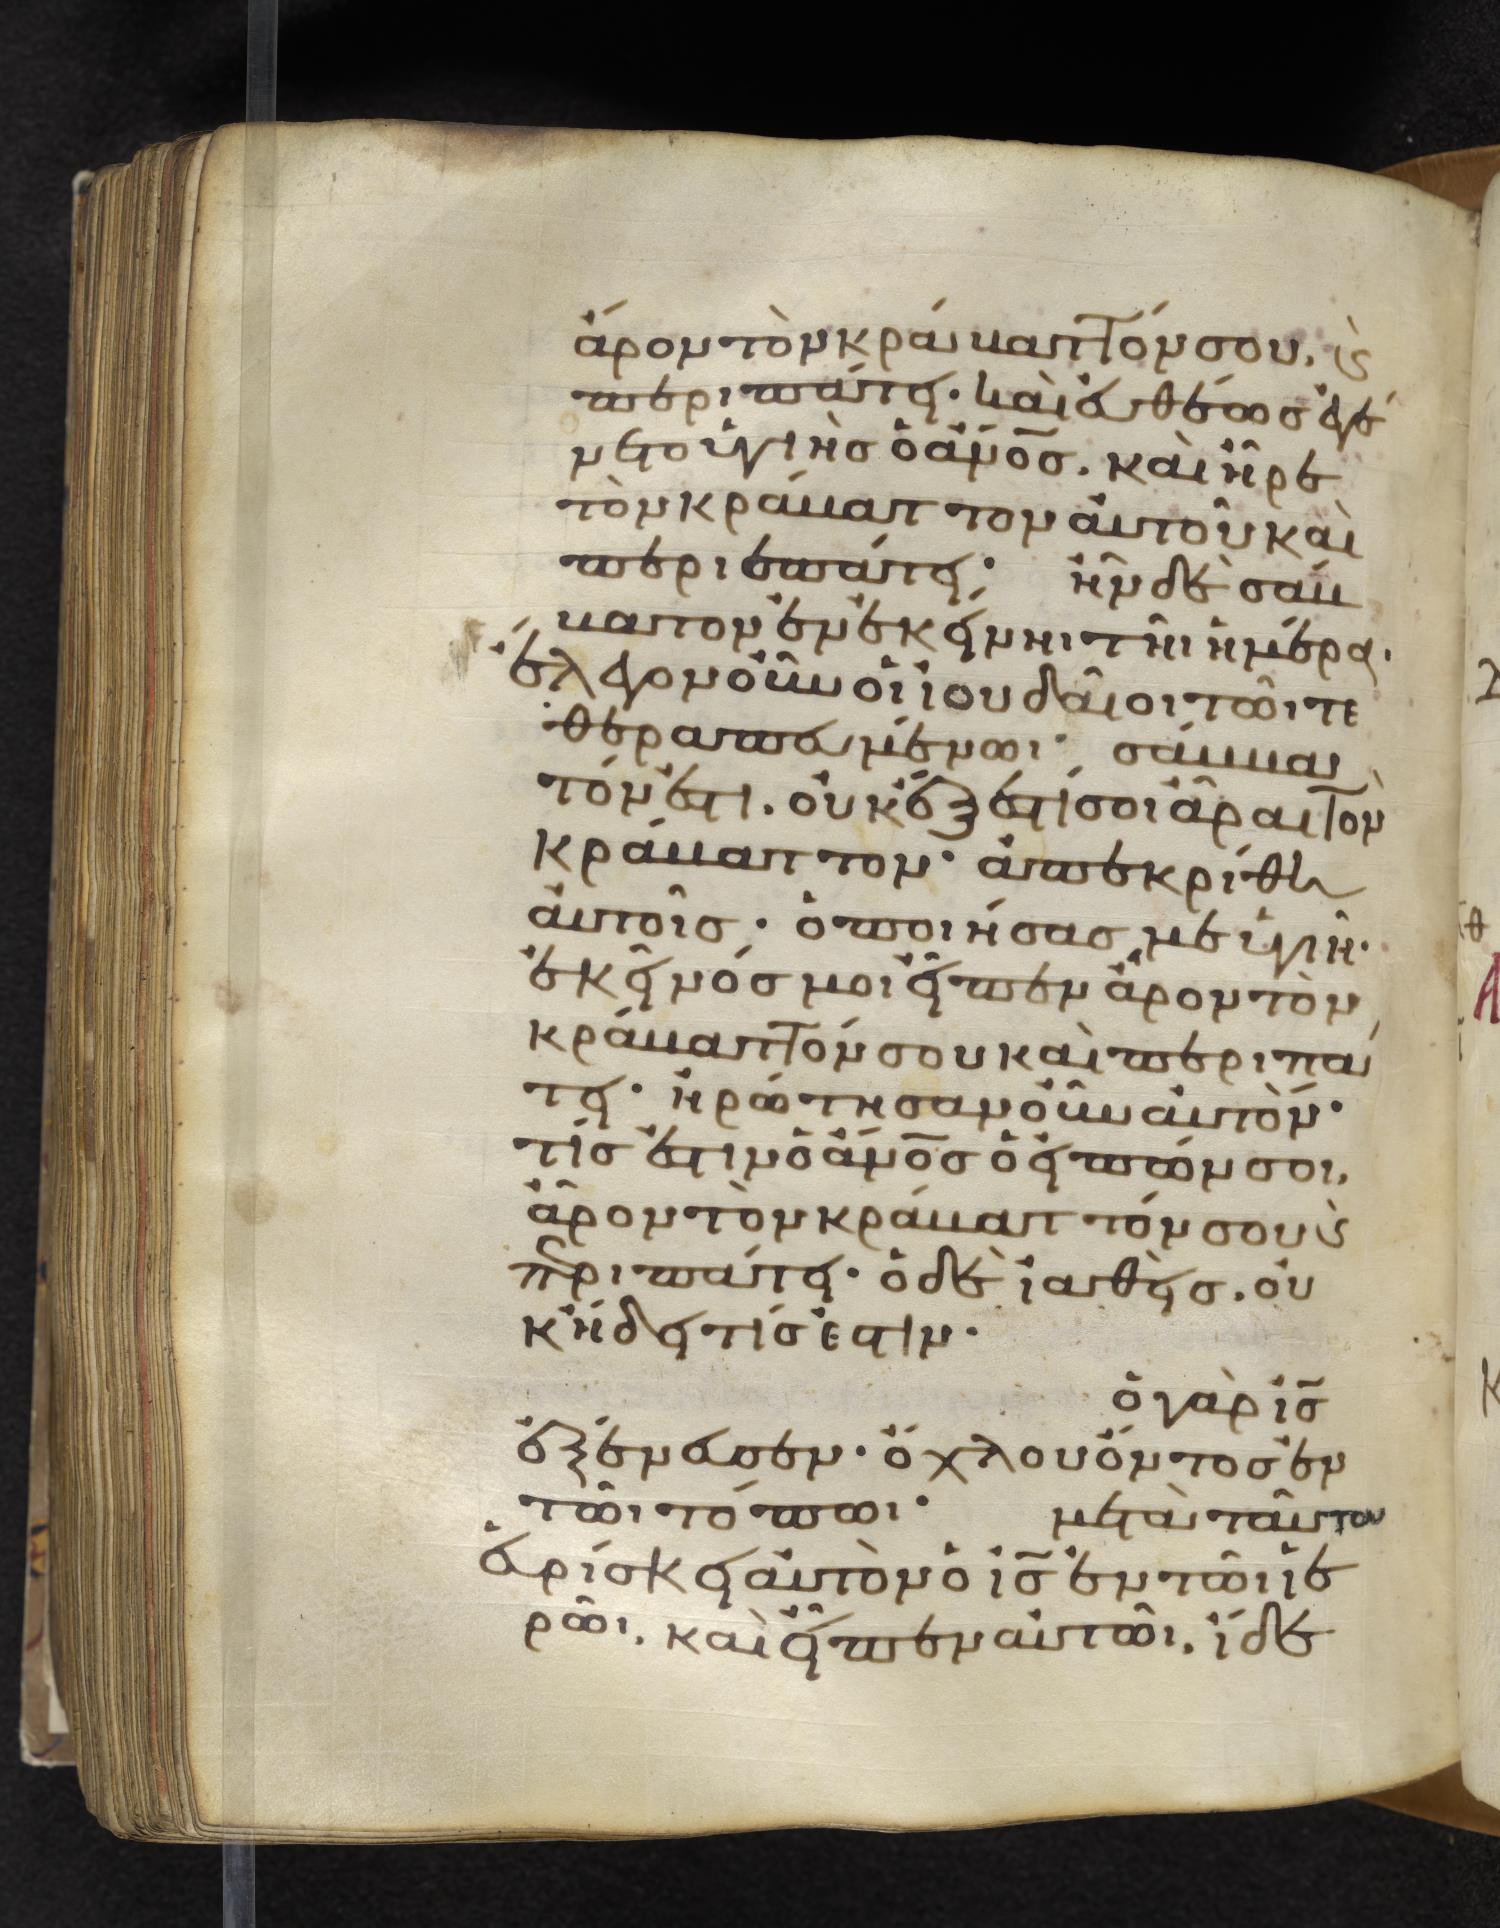 ἆρον τὸν κράβαττόν σου. ϗ
περιπάτει· καὶ εὐθέως ἐγέ
νετο ὑγιὴς ὁ ἄν̅ο̅ς. καὶ ἦρε
τὸν κράβαττον αὐτοῦ καὶ
περιεπάτει· ἦν δὲ σάβ
βατον ἐν ἐκείνηι τῆι ἡμέρα.
ἔλεγον οὖν οἱ ἰουδαῖοι τῶι τε
θεραπευμένωι· σάββα
τόν ἐστι. οὐκ ἔξεστί σοι ἆραι τὸν
κράβαττον· ἀπεκρίθη
αὐτοῖς· ὁ ποιήσας με ὑγιῆ·
ἐκεῖνός μοι εἶπεν ἆρον τὸν
κράβαττόν σου καὶ περιπά
τει· ἠρώτησαν οὖν αὐτόν·
τίς ἐστιν ὁ ἄν̅ο̅ς ὁ εἰπών σοι.
ἆρον τὸν κράβαττόν σου ϗ
περιπάτει· ὁ δὲ ἰαθεὶς. οὐ
κ ἤδει τίς ἐστιν·
ὁ γὰρ ἰ̅ς̅
ἐξένευσεν· ὄχλου ὄντος ἐν
τῶι τόπωι· μετὰ ταῦτα
εὑρίσκει αὐτὸν ὁ ἰ̅ς̅ ἐν τῶι ἱε
ρῶι. καὶ εἶπεν αὐτῶι. ἴδε